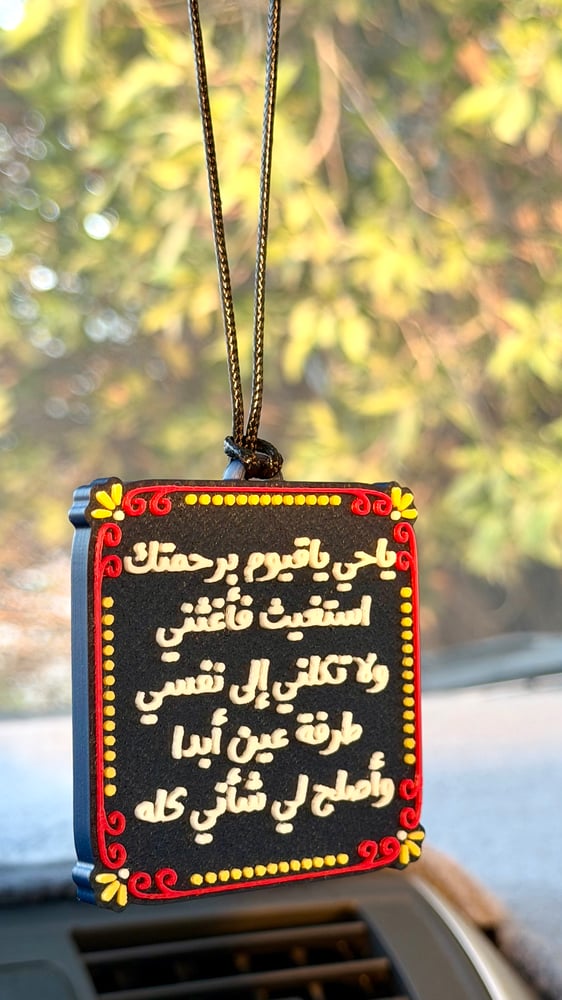 ياحي ياقيوم برحمتك
استغيث فأغثني
ولا تكلني إلى نفسي
طرفة عين أبدا
وأصلح لي شأني كله